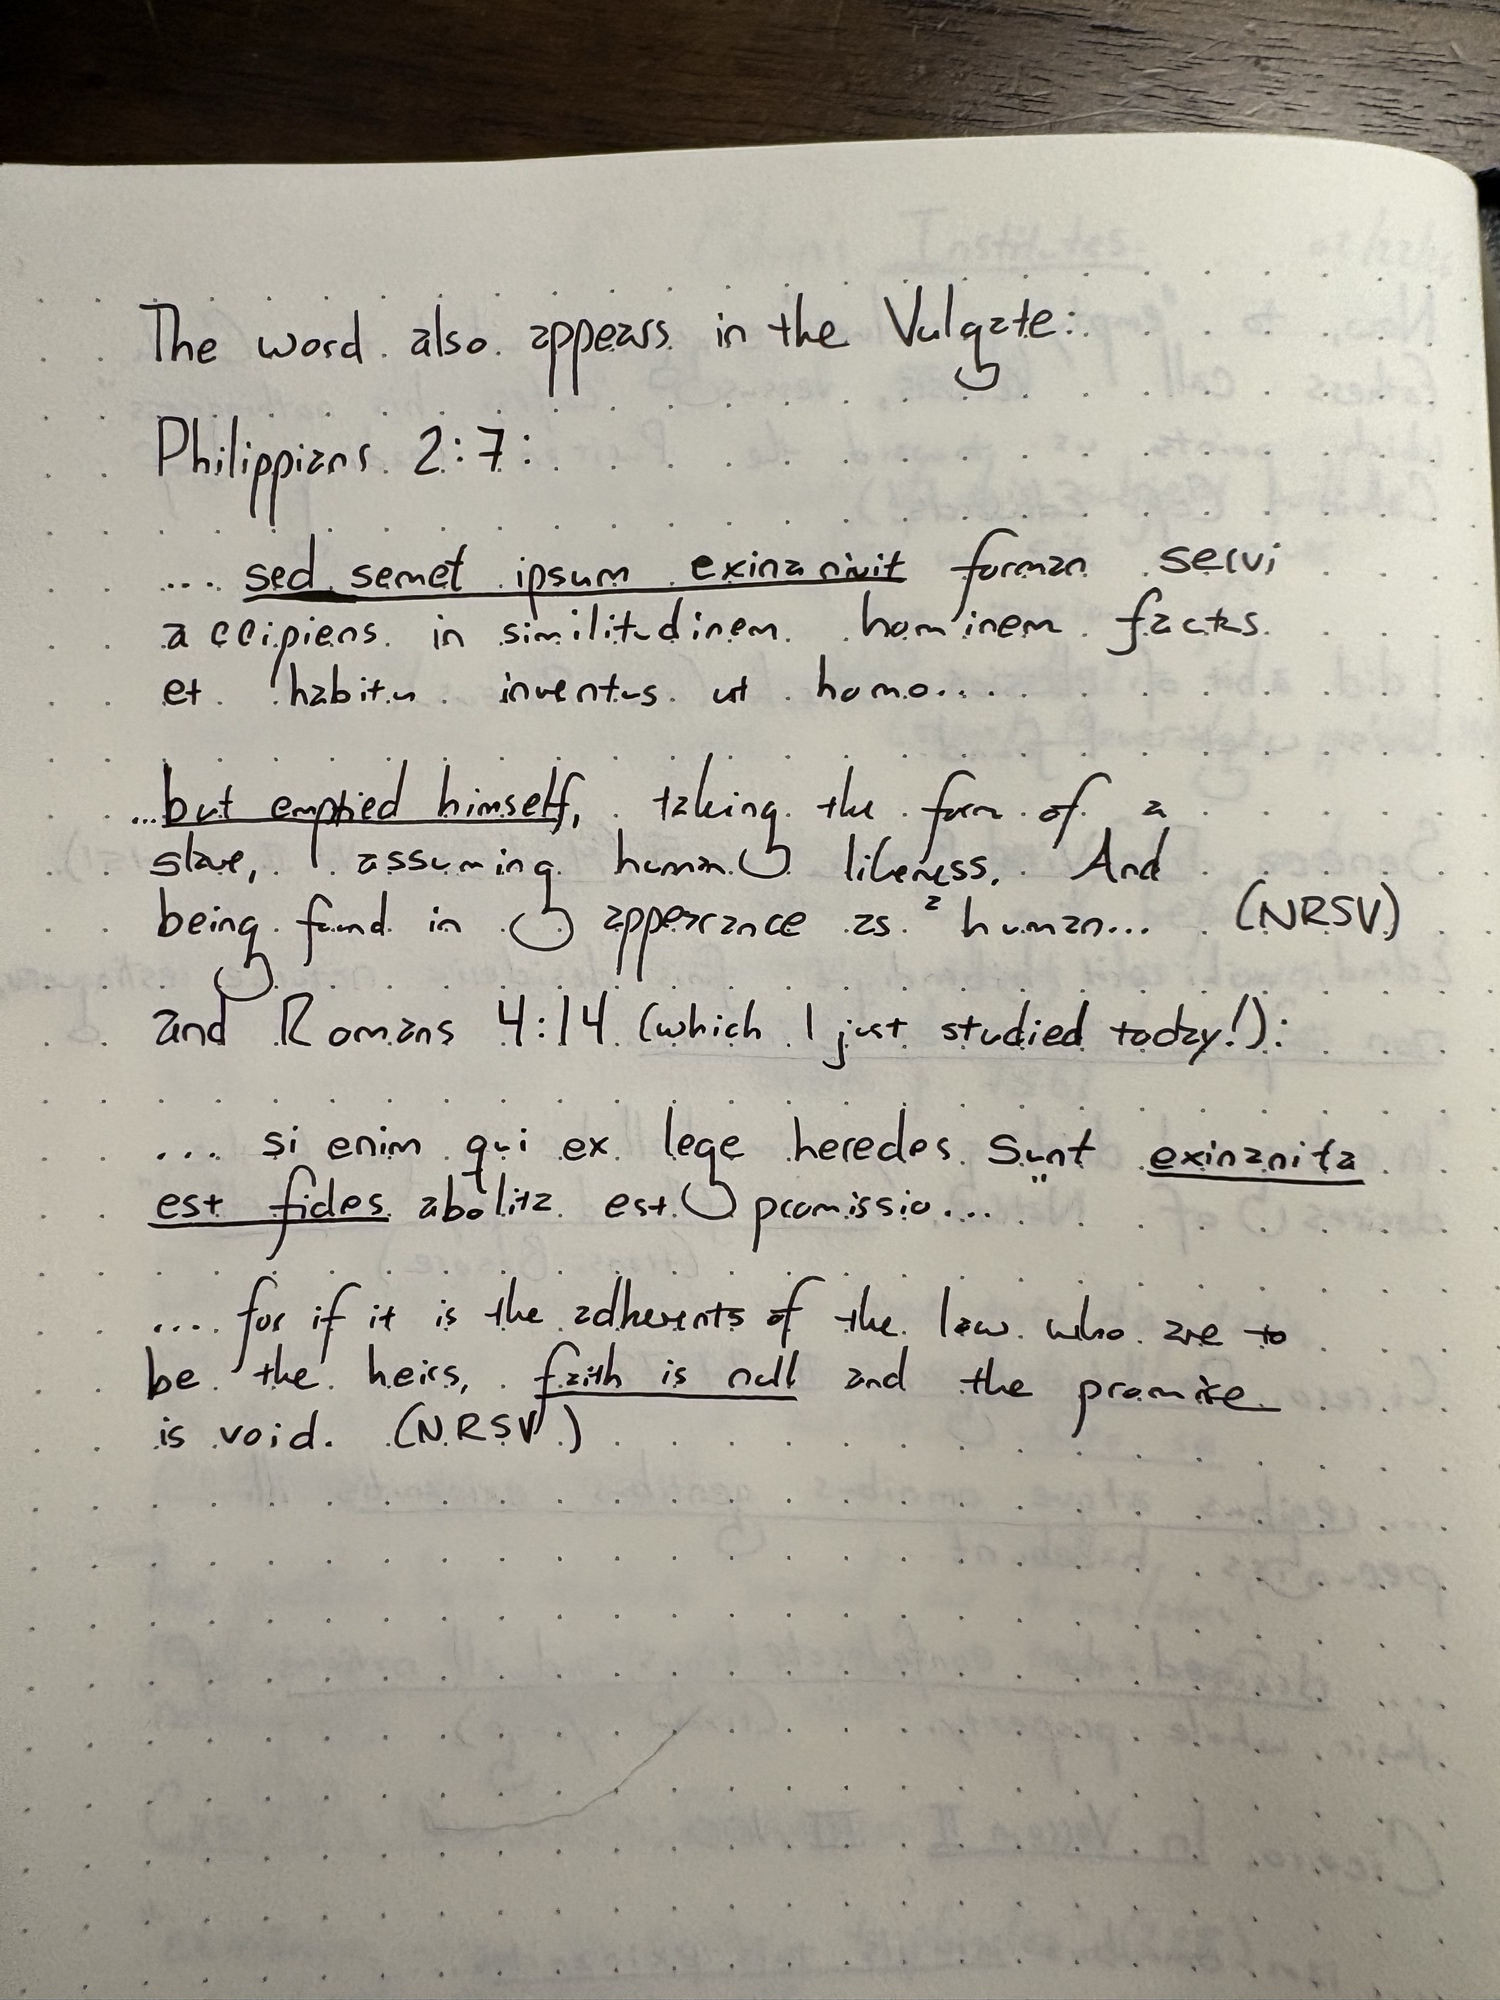 The word also appears in the Vulgate:
Philippians 2:7:
.... sed semet ipsum exinanivit forman servi
accipiens in similitudinem hominem factus
et habitu inventus ut homo....
...but emptied himself, taking the form of a
slave, assuming human likeness. And
being found in appearance as a human... (NRSV)
and Romans 4:14 (which I just studied today!):
... si enim qui ex lege heredes sunt exinanita
est fides abolita est promissio...
.... for if it is the adherents of the law who are to
be the heirs, faith is null and the promise
is void. (NRSV)